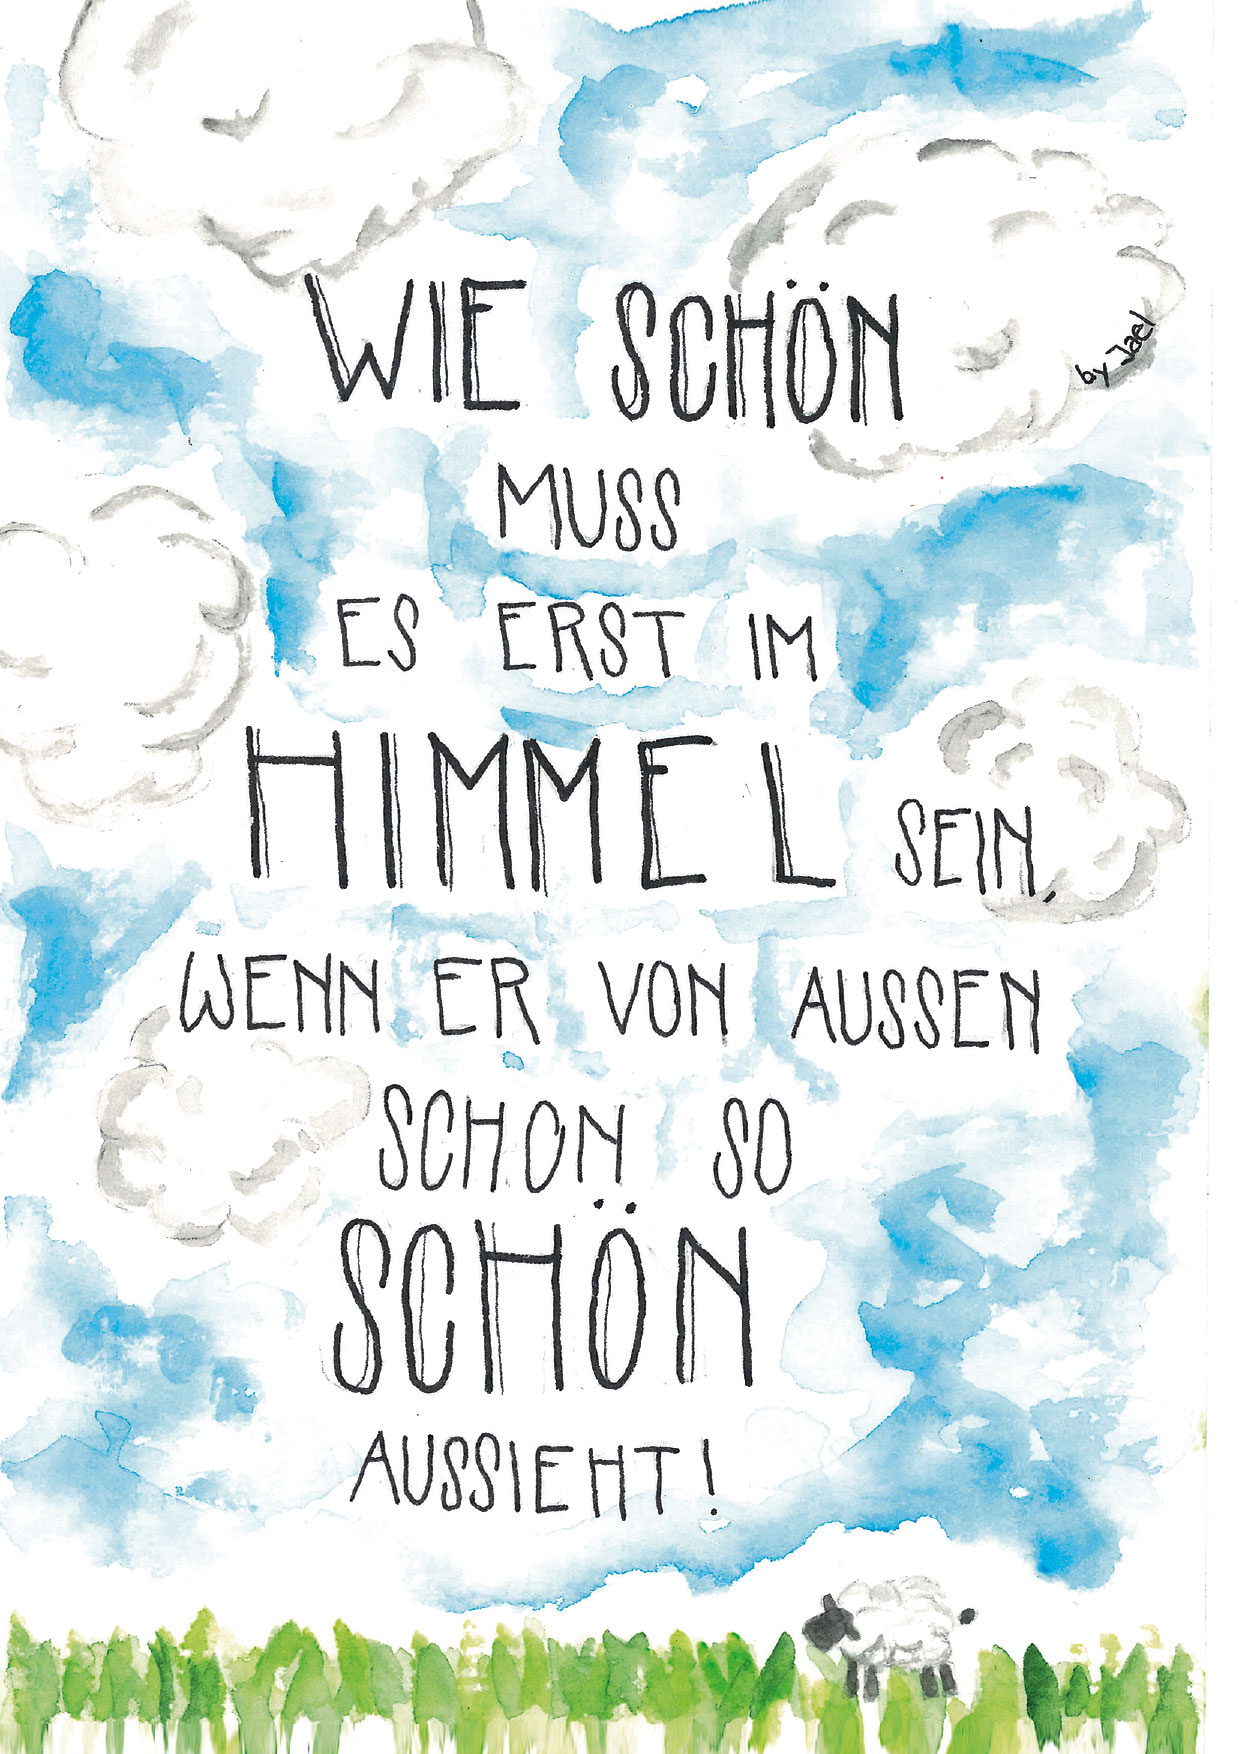 WIE SCHÖN
by Jael
MUSS
ES ERST IM
HIMMEL SEIN,
WENN ER VON AUSSEN
SCHON SO
SCHÖN
AUSSIEHT!